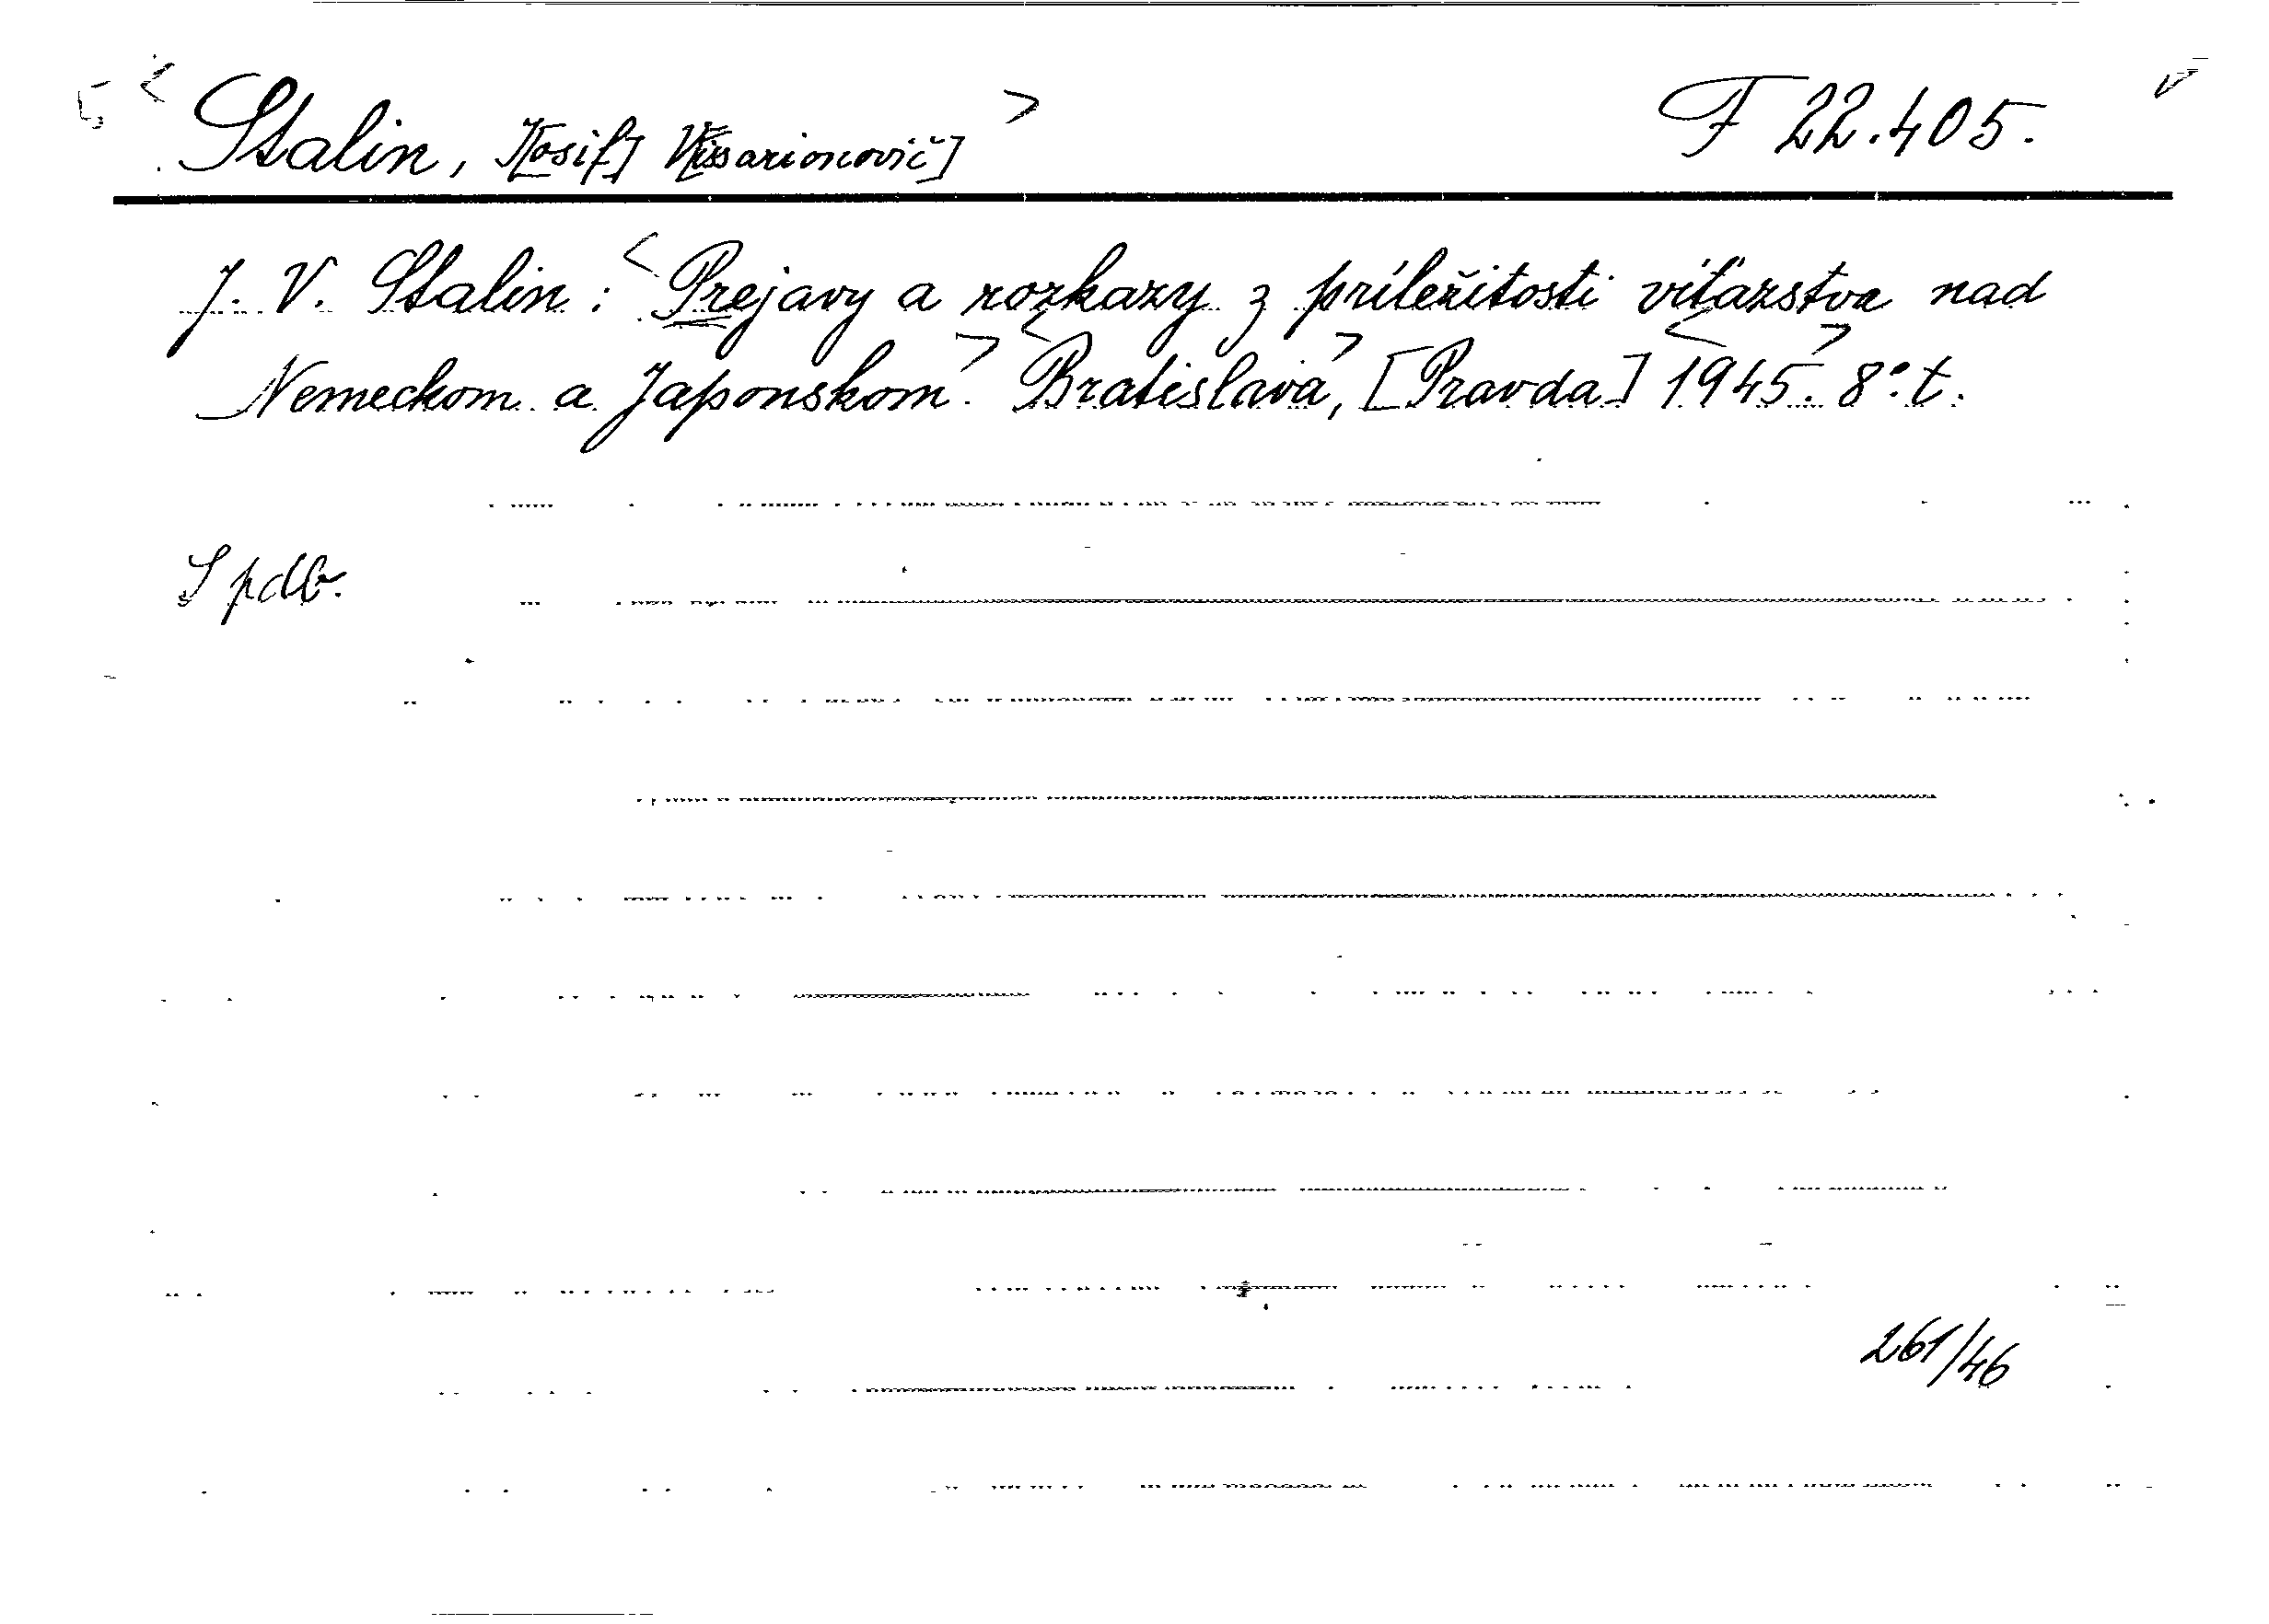 <Stalin, J[osif] V[issarionovič]> F 22.405.
J. V. Stalin: <Prejavy a rozkazy z príležitosti víťazstva nad
Nemeckom a Japonskom.> <Bratislava>, [Pravda] <1945.> 8° t.
S pdb.
261/46